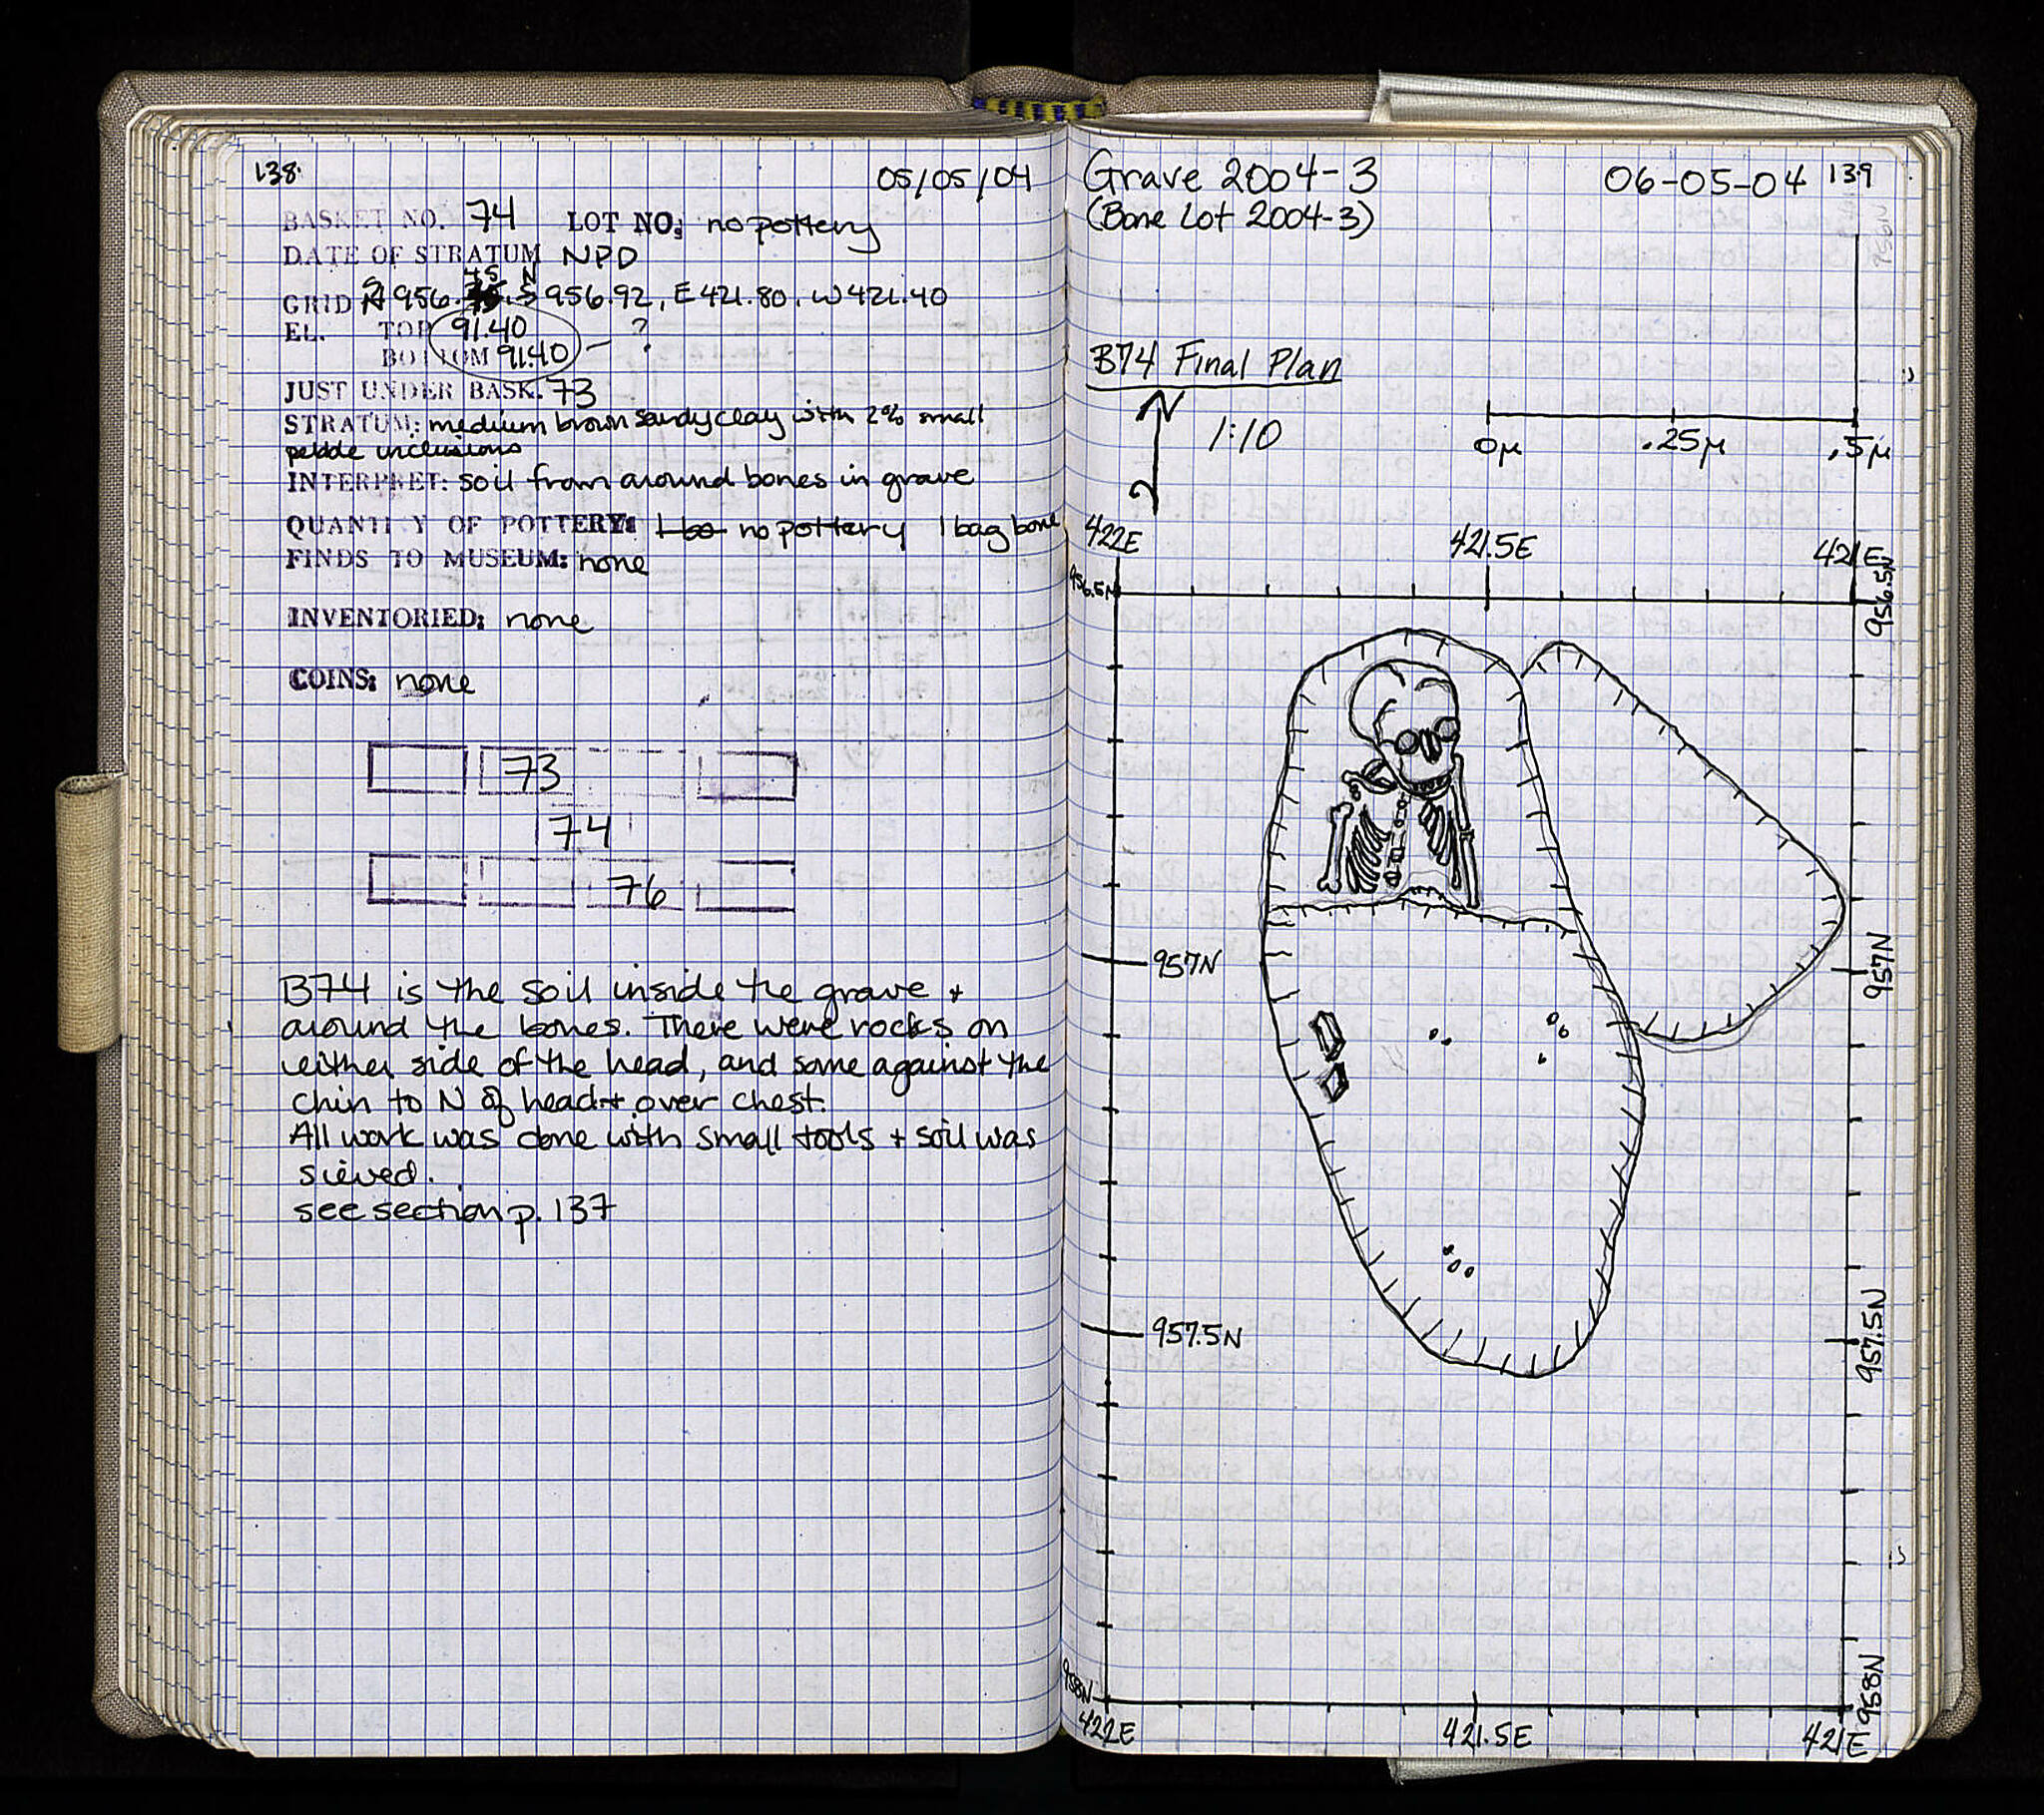 138.
05/05/04
BASKET NO. 74 LOT NO: no pottery
DATE OF STRATUM NPD
45 N
GRID S 956. S 956.92, E 421.80, W 421.40
EL. TOP 91.40 ?
BOTTOM 91.40 -
JUST UNDER BASK. 73
STRATUM: medium brown sandy clay with 2% small
pebble inclusions
INTERPRET: soil from around bones in grave
QUANTITY OF POTTERY: no pottery 1 bag bone
FINDS TO MUSEUM: none
INVENTORIED: none
COINS: none
73
74
76
B74 is the soil inside the grave +
around the bones. There were rocks on
either side of the head, and some against the
chin to N of head + over chest.
All work was done with small tools + soil was
sieved.
see section p. 137
Grave 2004-3
06-05-04 139
(Bone Lot 2004-3)
B74 Final Plan
N
1:10
0μ .25μ .5μ
422E 421.5E 421E
956.5N
956.5N
957N
957N
957.5N
957.5N
958N
958N
422E 421.5E 421E